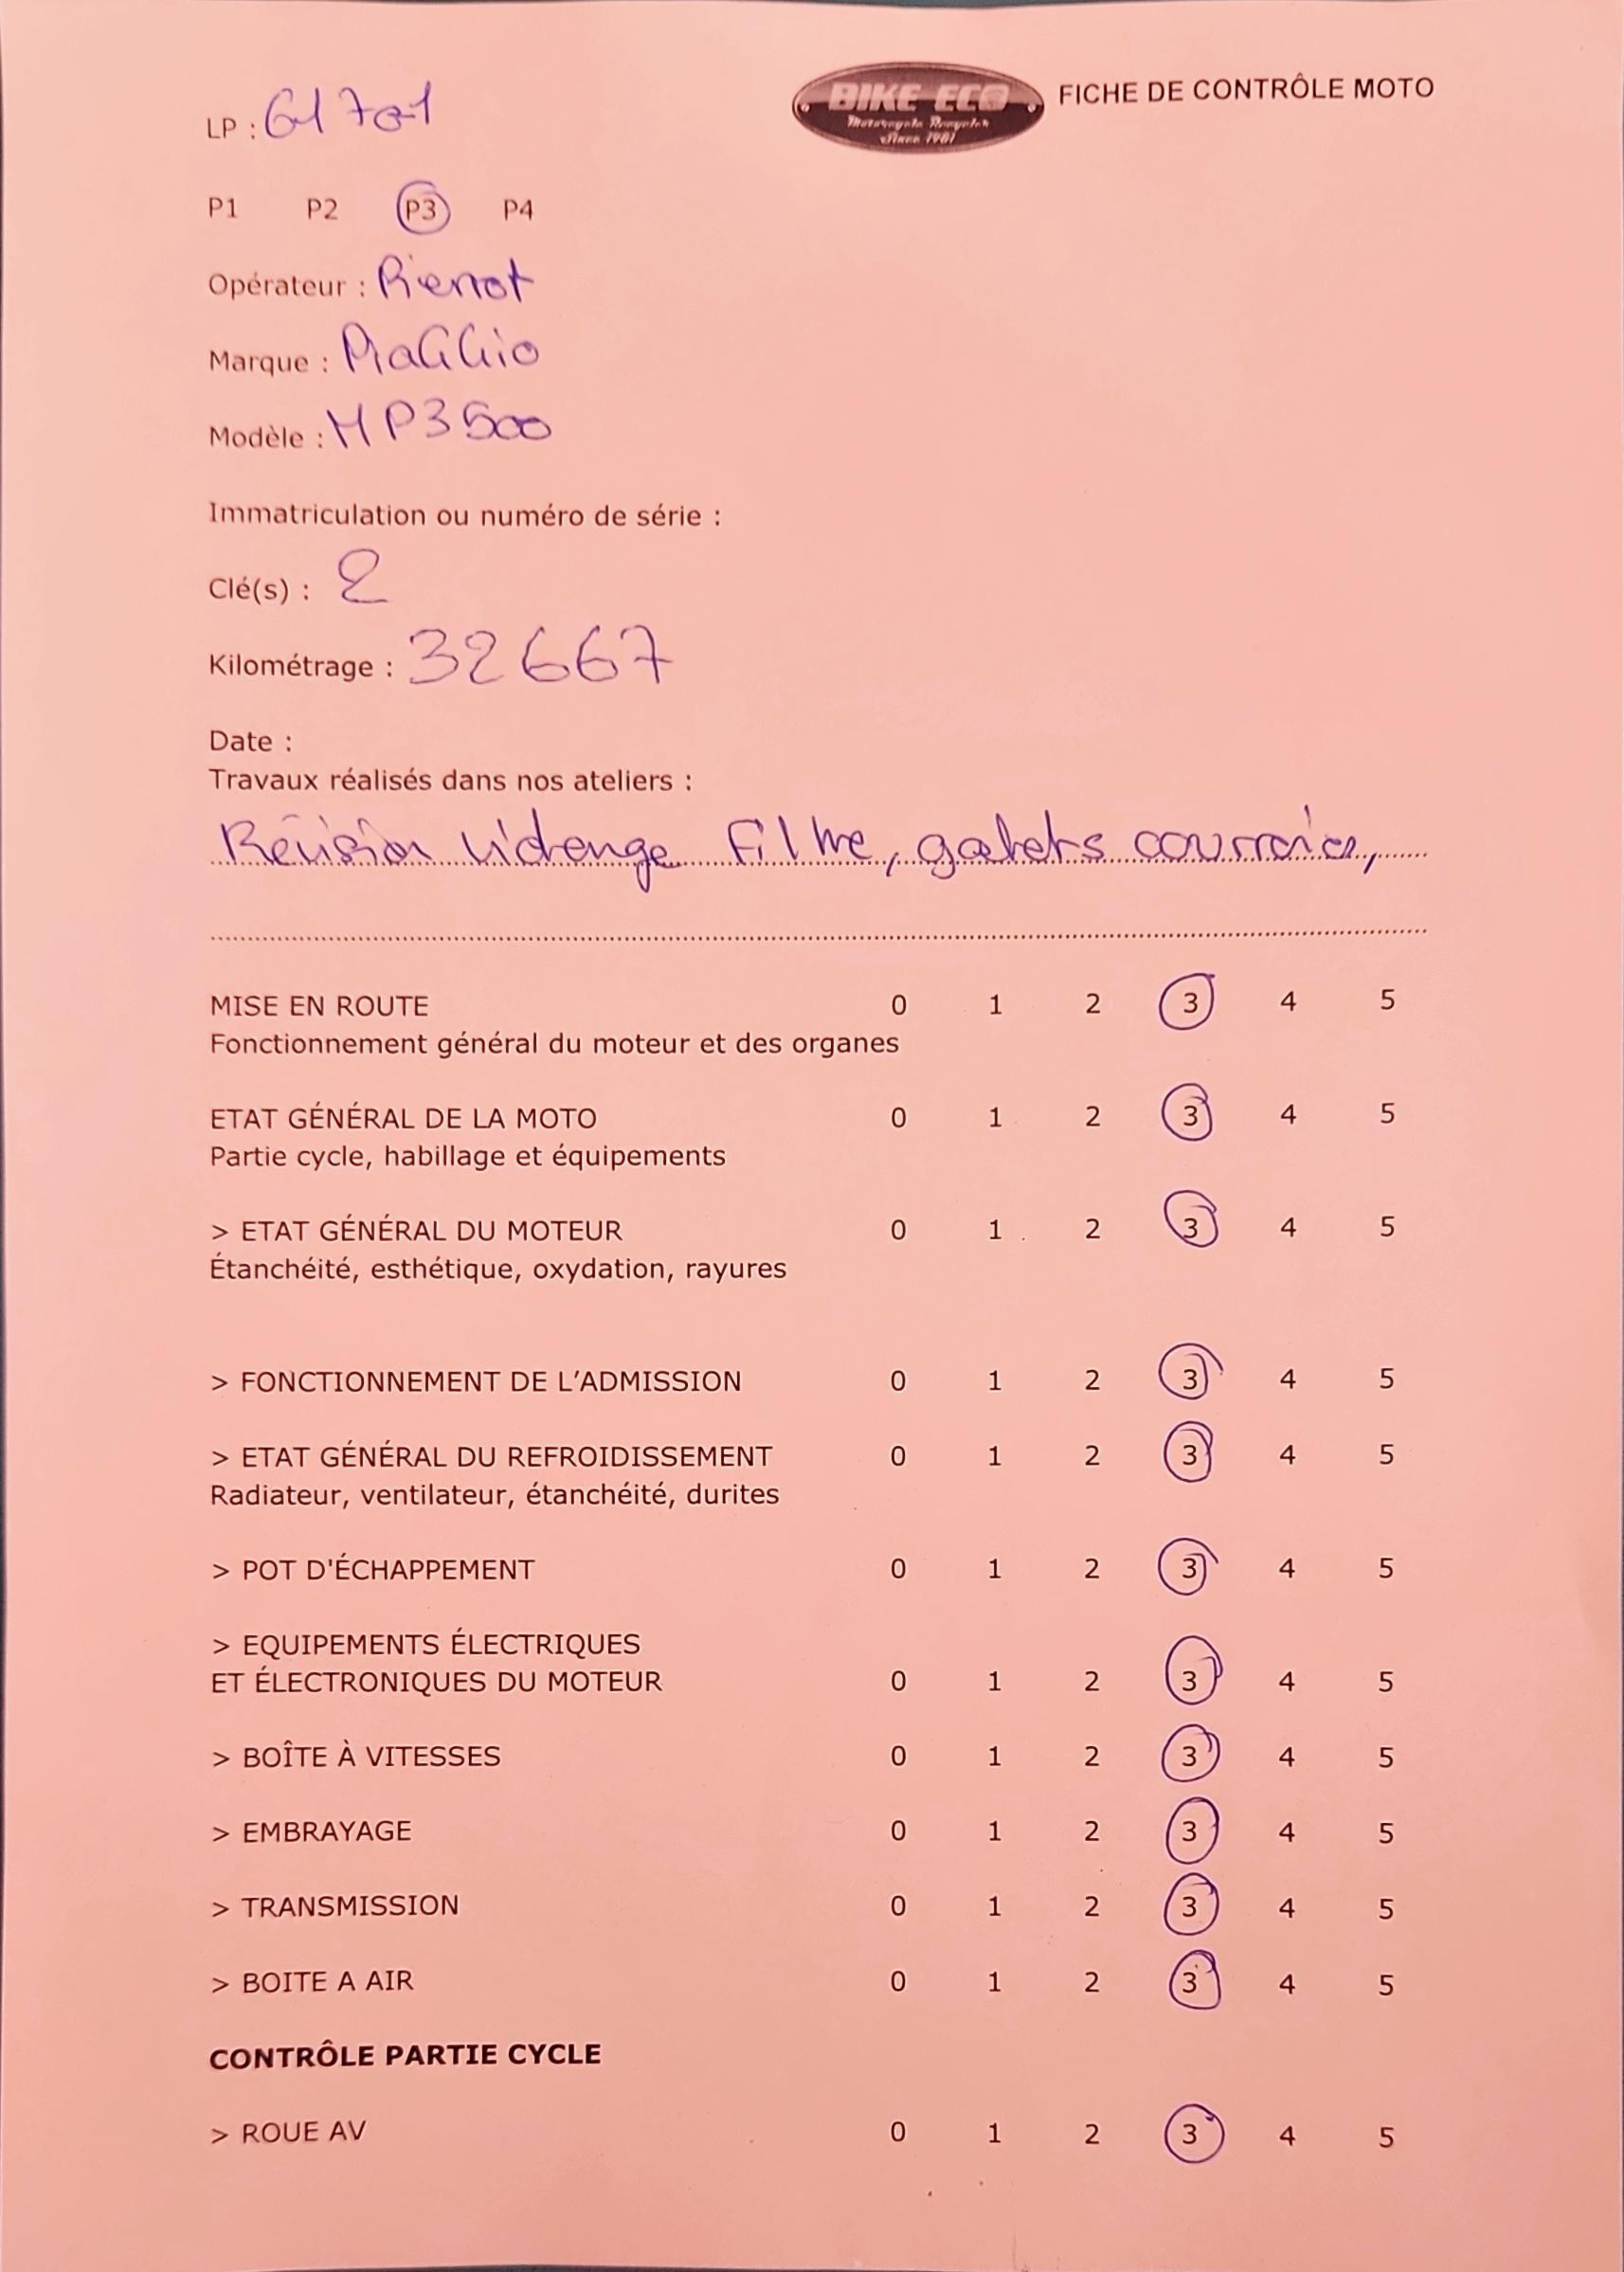 LP : 61701
BIKE ECO
Motorcycle Recycler
Since 1981
FICHE DE CONTRÔLE MOTO
P1 P2 P3 P4
Opérateur :
Marque : PiaGGio
Modèle : MP3 500
Immatriculation ou numéro de série :
Clé(s) : 2
Kilométrage : 32667
Date :
Travaux réalisés dans nos ateliers :
Révision Vidange Filtre, galets courroies,
MISE EN ROUTE 0 1 2 3 4 5
Fonctionnement général du moteur et des organes
ETAT GÉNÉRAL DE LA MOTO 0 1 2 3 4 5
Partie cycle, habillage et équipements
> ETAT GÉNÉRAL DU MOTEUR 0 1 2 3 4 5
Étanchéité, esthétique, oxydation, rayures
> FONCTIONNEMENT DE L'ADMISSION 0 1 2 3 4 5
> ETAT GÉNÉRAL DU REFROIDISSEMENT 0 1 2 3 4 5
Radiateur, ventilateur, étanchéité, durites
> POT D'ÉCHAPPEMENT 0 1 2 3 4 5
> EQUIPEMENTS ÉLECTRIQUES
ET ÉLECTRONIQUES DU MOTEUR 0 1 2 3 4 5
> BOÎTE À VITESSES 0 1 2 3 4 5
> EMBRAYAGE 0 1 2 3 4 5
> TRANSMISSION 0 1 2 3 4 5
> BOITE A AIR 0 1 2 3 4 5
CONTRÔLE PARTIE CYCLE
> ROUE AV 0 1 2 3 4 5